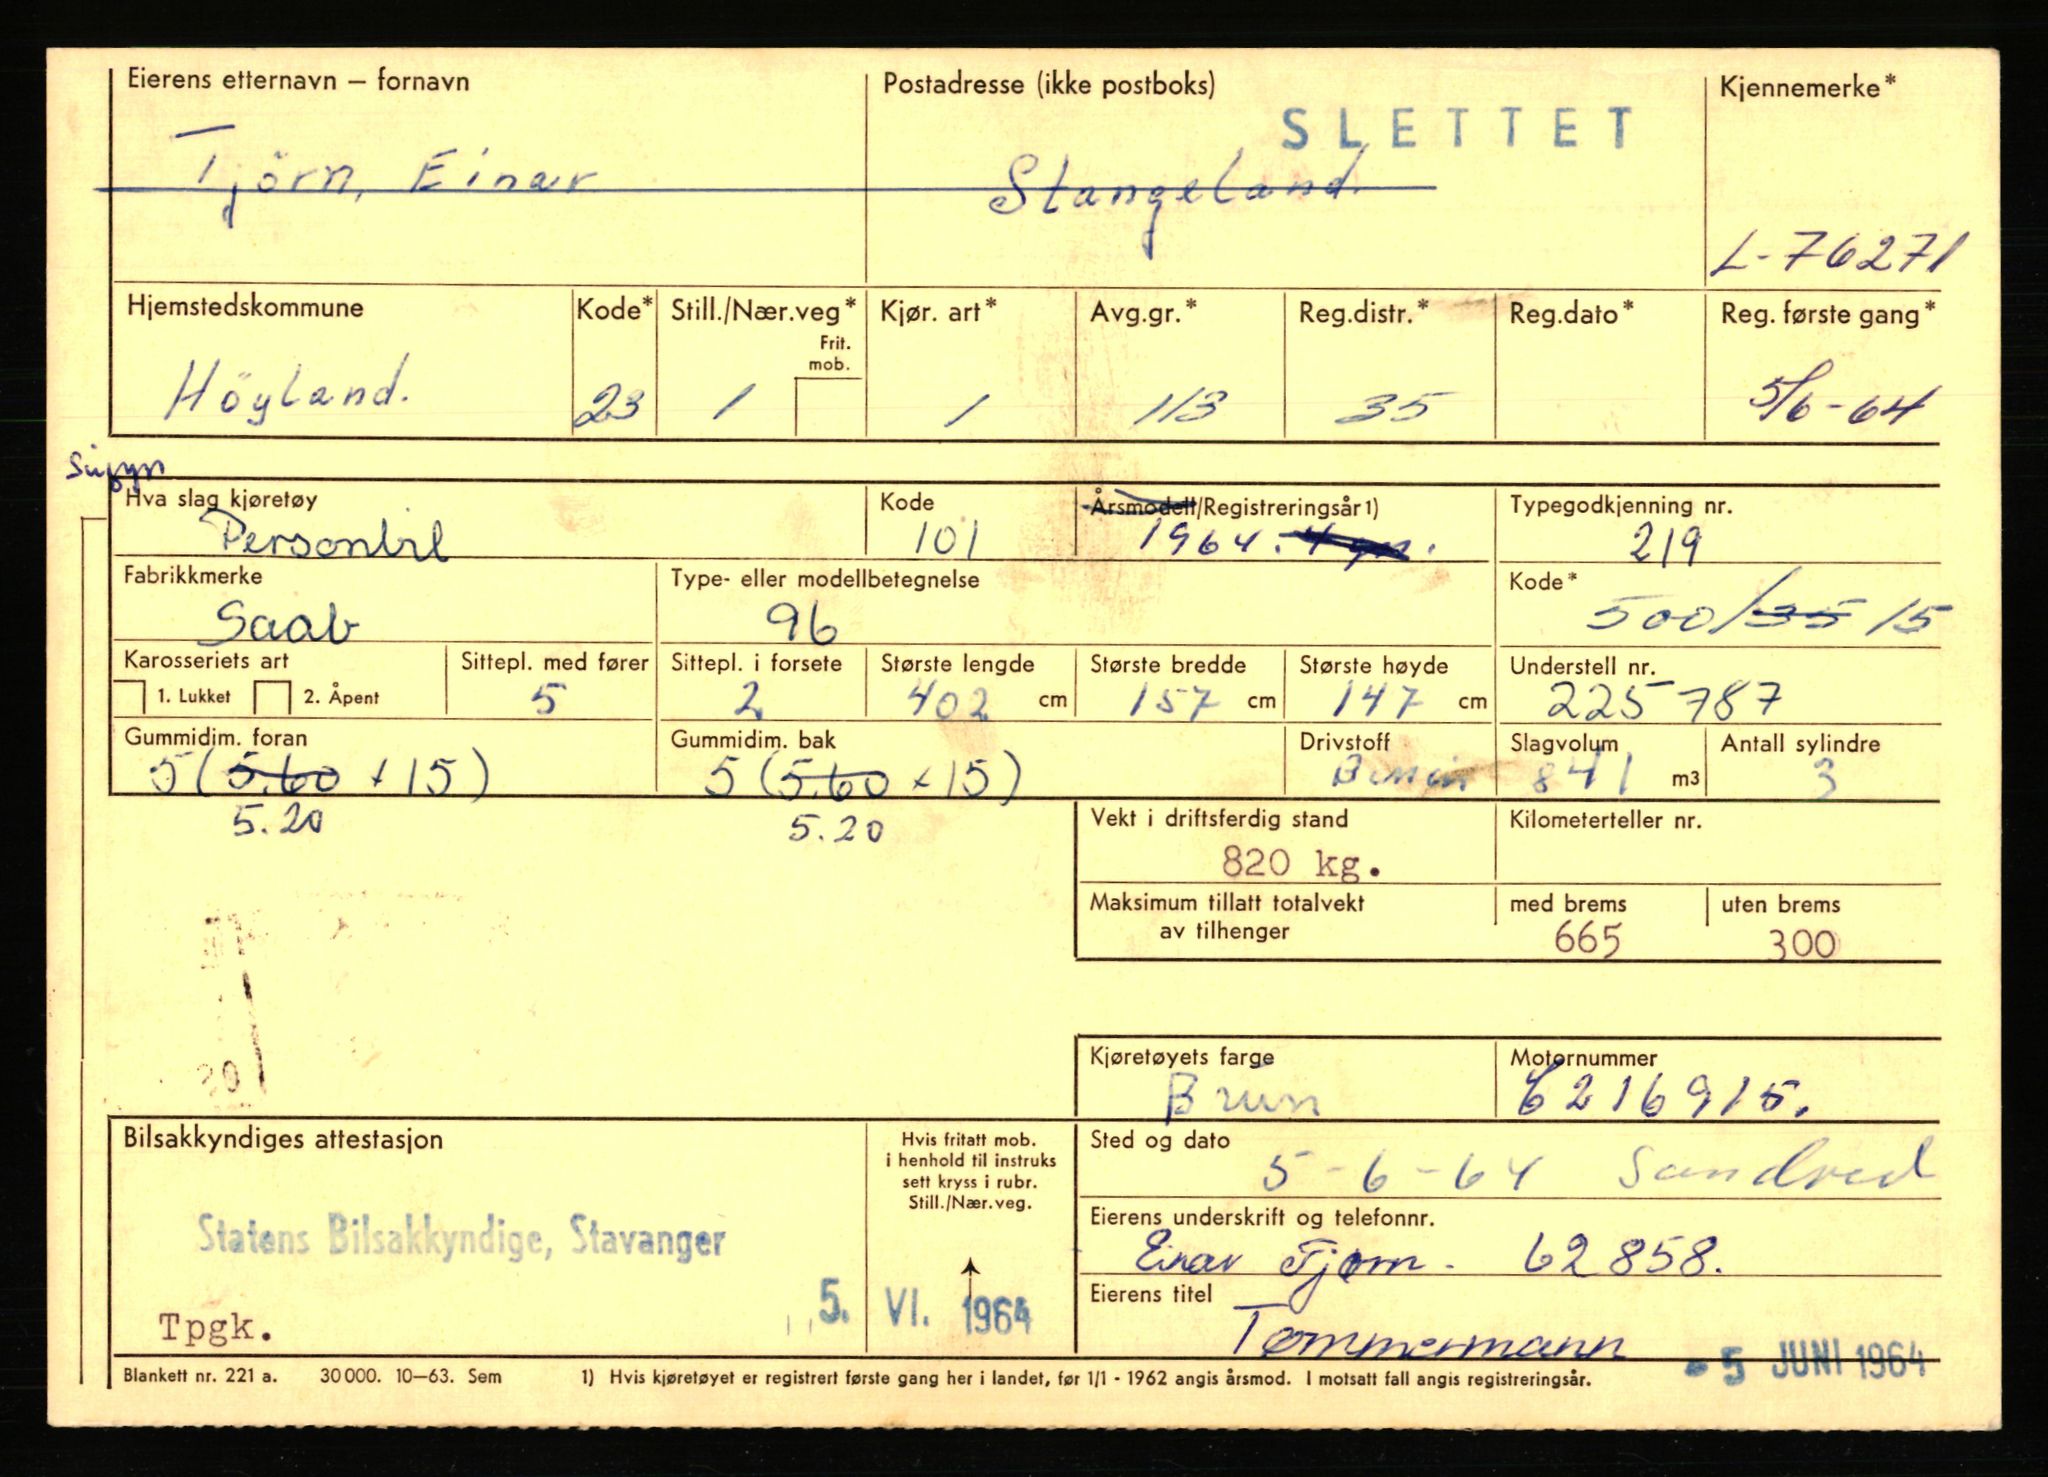 Eierens etternavn — fornavn
Postadresse (ikke postboks)
Kjennemerke*
SLETTET
Tjörn, Einar
Stangeland.
L-76271
Hjemstedskommune
Kode*
Still./Nær.veg*
Frit.
mob.
Kjør. art*
Avg.gr.*
Reg.distr.*
Reg.dato*
Reg. første gang*
Höyland.
23
1
1
113
35
5/6-64
Hva slag kjøretøy
Kode
Årsmodell/Registreringsår 1)
Typegodkjenning nr.
Personbil
101
1964.
219
Fabrikkmerke
Type- eller modellbetegnelse
Kode*
Saab
96
500/35 15
Karosseriets art
Sittepl. med fører
Sittepl. i forsete
Største lengde
Største bredde
Største høyde
Understell nr.
1. Lukket
2. Åpent
5
2
402 cm
157 cm
147 cm
225787
Gummidim. foran
Gummidim. bak
Drivstoff
Slagvolum
Antall sylindre
5 (5.60 x 15)
5 (5.60 x 15)
Bensin
841 m3
3
5.20
5.20
Vekt i driftsferdig stand
Kilometerteller nr.
820 kg.
Maksimum tillatt totalvekt
av tilhenger
med brems
uten brems
665
300
20
Kjøretøyets farge
Motornummer
Brun
6216915.
Bilsakkyndiges attestasjon
Hvis fritatt mob.
i henhold til instruks
sett kryss i rubr.
Still./Nær.veg.
Sted og dato
5-6-64 Sandved
Statens Bilsakkyndige, Stavanger
Eierens underskrift og telefonnr.
Einar Tjørn. 62858.
5. VI. 1964
Tpgk.
Eierens titel
Tømmermann
- 5 JUNI 1964
Blankett nr. 221 a. 30 000. 10—63. Sem
1) Hvis kjøretøyet er registrert første gang her i landet, før 1/1 - 1962 angis årsmod. I motsatt fall angis registreringsår.